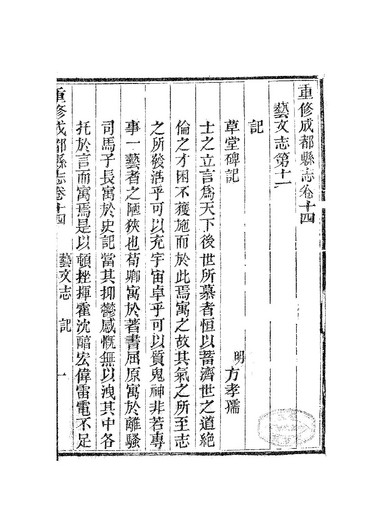 重修成都縣志卷十四
藝文志第十二
記
草堂碑記
明方孝孺
士之立言爲天下後世所慕者恒以蓄濟世之道絶
倫之才困不獲施而於此焉寓之故其氣之所至志
之所發浩乎可以充宇宙卓乎可以質鬼神非若專
事一藝者之陋狹也荀卿寓於著書屈原寓於離騷
司馬子長寓於史記當其抑鬱感慨無以洩其中各
托於言而寓焉是以頓挫揮霍沈醋宏偉雷電不足
重修成都縣志卷十四
藝文志
記
一